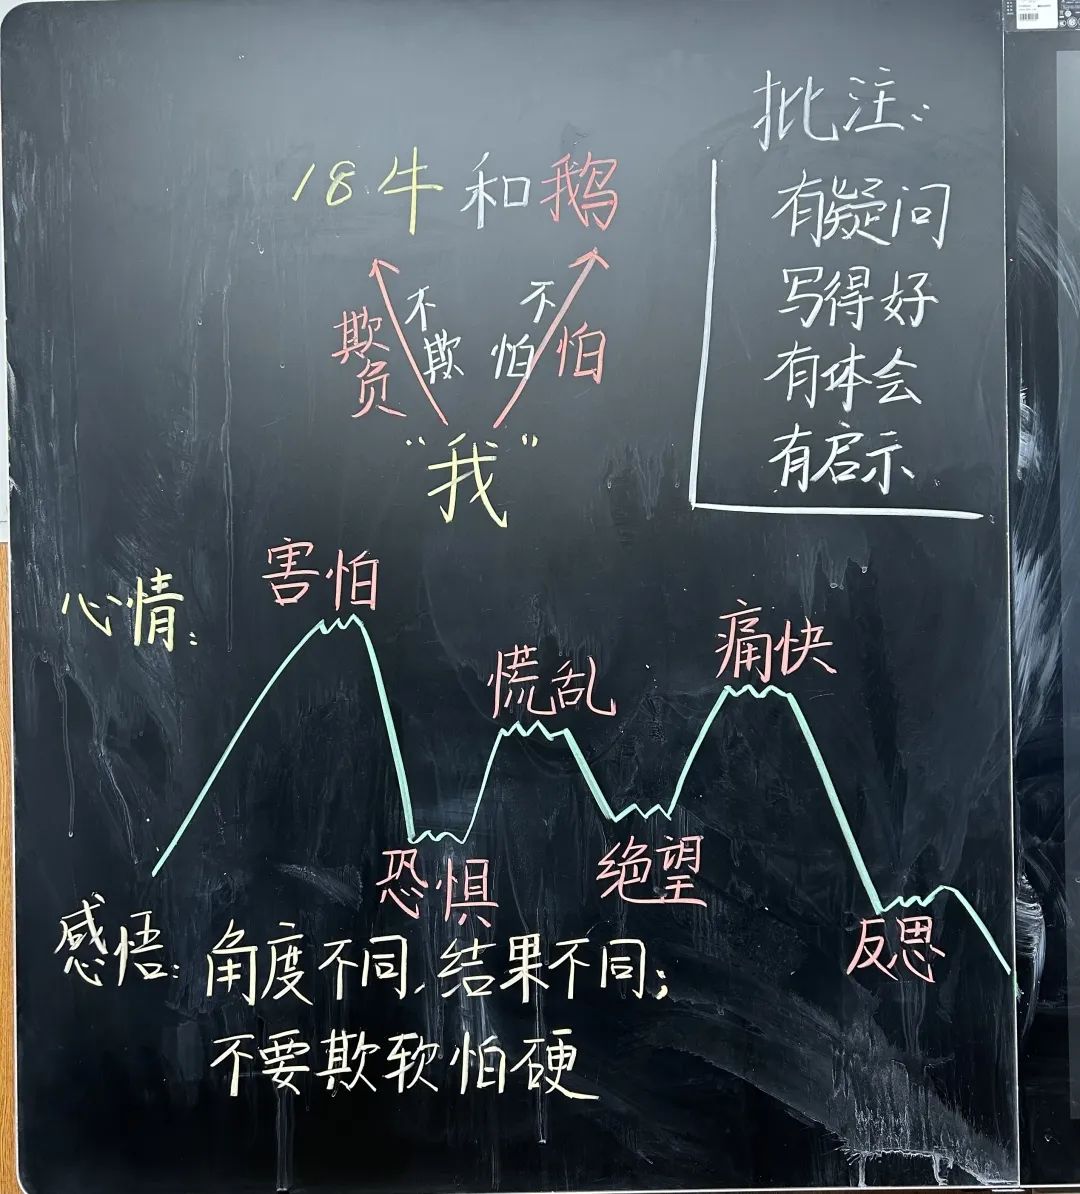 18.牛和鹅
欺负
不欺
不怕
怕
“我”
批注:
有疑问
写得好
有体会
有启示
心情:
害怕
恐惧
慌乱
绝望
痛快
反思
感悟:角度不同,结果不同;
不要欺软怕硬